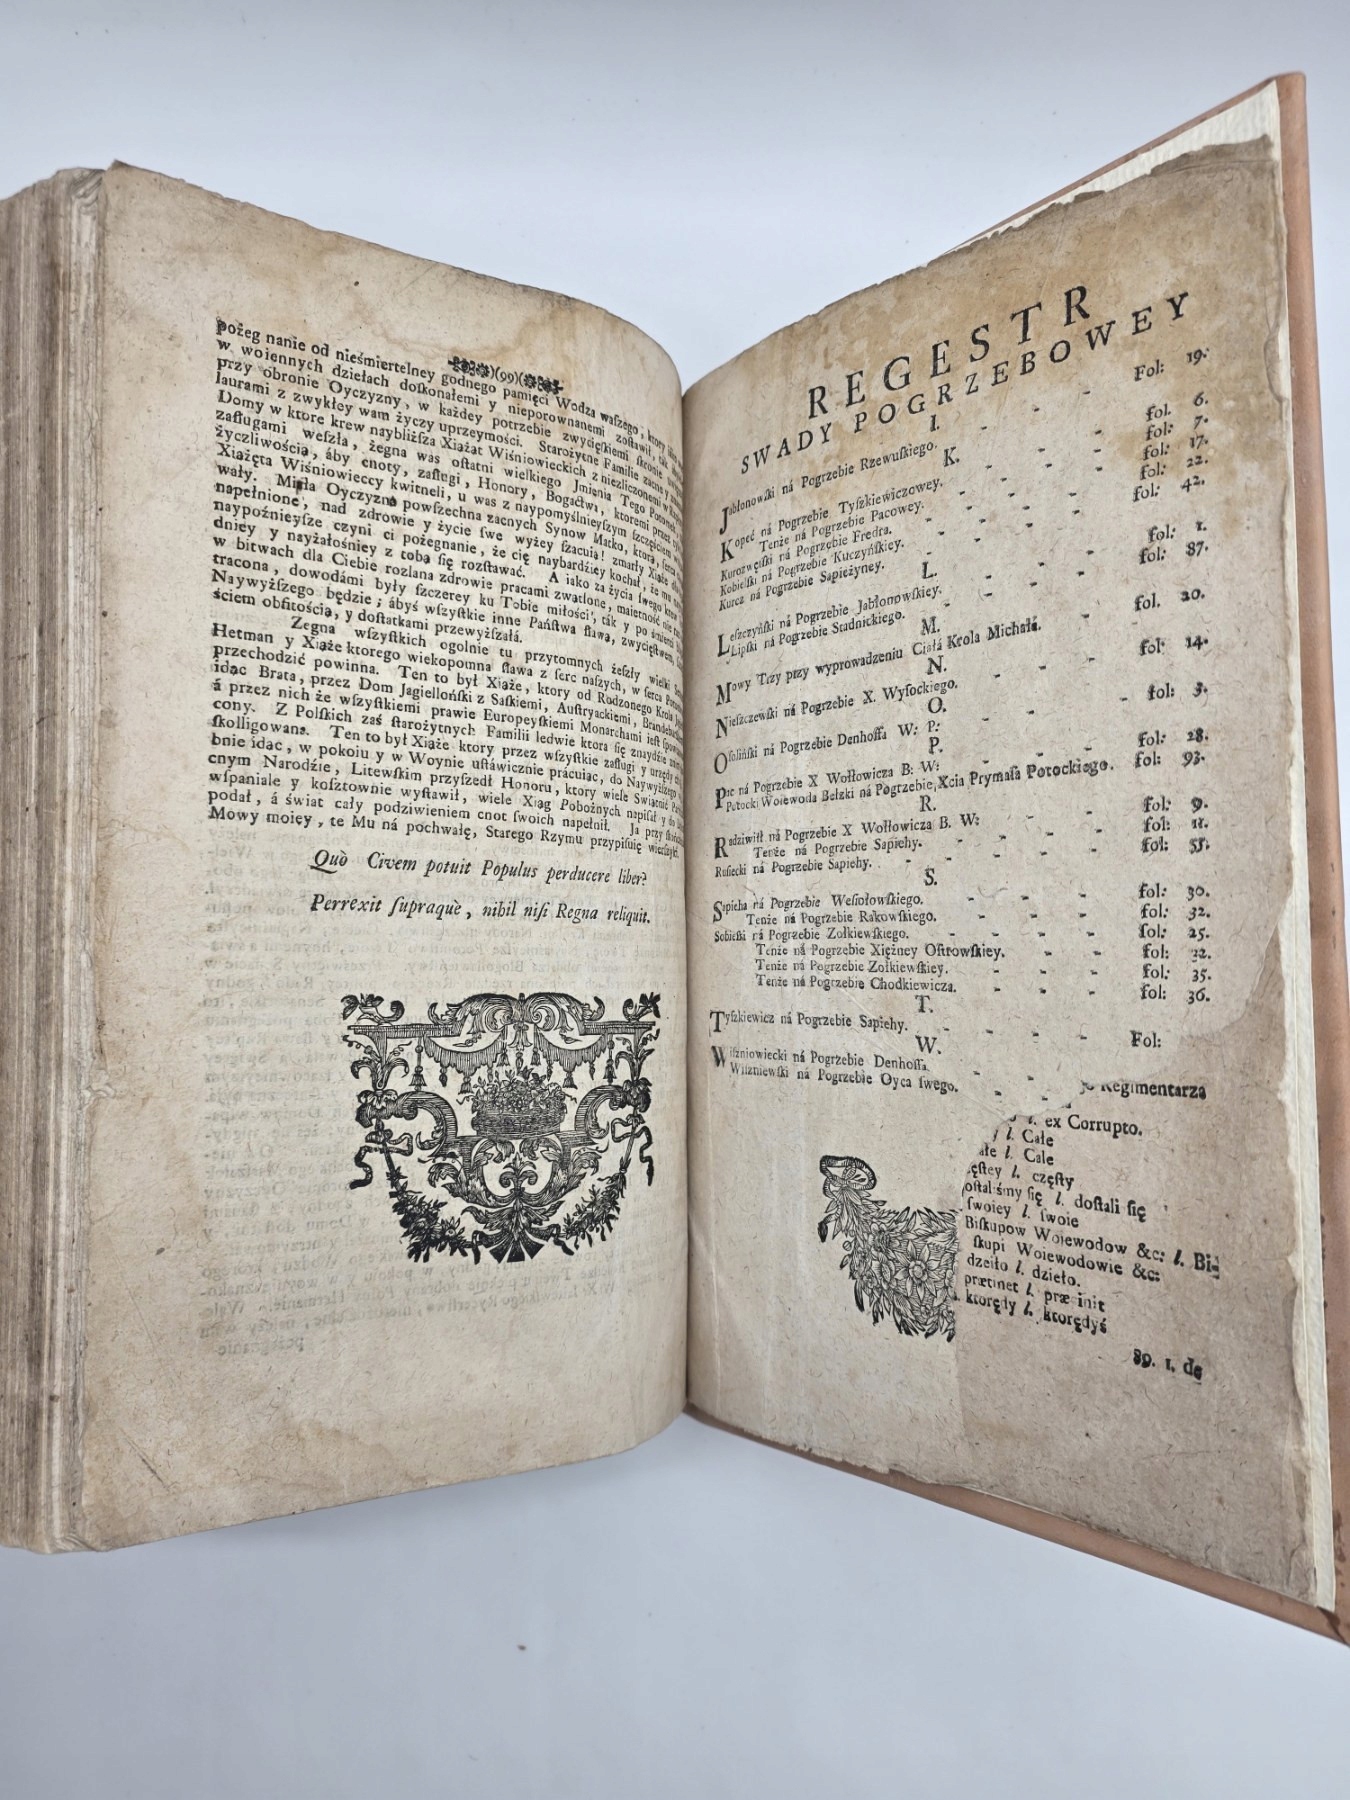 )(99)(
pożeg nanie od nieśmiertelney godnego pamięci Wodza waſzego, ktory
w woiennych dziełach doſkonałemi y nieporownanemi zoſtawił, tak
przy obronie Oyczyzny, w każdey potrzebie zwycięſkiemi ſkronie
laurami z zwykłey wam życzy uprzeymości. Starożytne Familie zacne y
Domy w ktore krew naybliżſza Xiążąt Wiśniowieckich z niezliczonemi w
zaſługami weſzła, żegna was oſtatni wielkiego Imienia Tego Potomek,
życzliwością, áby cnoty, zaſługi, Honory, Bogactwa, ktoremi przez
Xiążęta Wiśniowieccy kwitneli, u was z naypomyślnieyſzym ſzczęściem
wały. Miła Oyczyzno powſzechna zacnych Synow Matko, ktora, ſerca
napełnione, nad zdrowie y życie ſwe wyżey ſzacuią! zmarły Xiąże
naypoźnieyſze czyni ci pożegnanie, że cię naybardźiey kochał, że mu
dniey y nayżałośniey z tobą się rozſtawać. A iako za życia ſwego
w bitwach dla Ciebie rozlana zdrowie pracami zwątlone, maiętność nie
tracona, dowodámi były ſzczerey ku Tobie miłości, tak y po śmierci
Naywyżſzego będzie; ábyś wſzyſtkie inne Pańſtwa ſławą, zwycięſtwem,
ściem obfitością, y doſtatkami przewyżſzałá.
Zegna wſzyſtkich ogolnie tu przytomnych żeſzły wielki
Hetman y Xiąże ktorego wiekopomna ſława z ſerc naſzych, w ſerca
przechodzić powinna. Ten to był Xiąże, ktory od Rodzonego Krola
idąc Brata, przez Dom Jagiellońſki z Saſkiemi, Auſtryackiemi,
á przez nich że wſzyſtkiemi prawie Europeyſkiemi Monarchami ieſt
cony. Z Polſkich zaś ſtarożytnych Familii ledwie ktora ſię znaydzie
ſkolligowana. Ten to był Xiąże ktory przez wſzyſtkie zaſługi y urzędy
bnie idąc, w pokoiu y w Woynie uſtáwicznie prácuiąc, do Naywyżſzego
cnym Narodźie, Litewſkim przyſzedł Honoru, ktory wiele Swiątnic
wſpaniale y koſztownie wyſtawił, wiele Xiąg Pobożnych napiſał y do
podał, á świat cały podziwieniem cnot ſwoich napełnił. Ja przy
Mowy moiey, te Mu ná pochwałę, Starego Rzymu przypiſuię wierſzyki.
Quò Civem potuit Populus perducere liber?
Perrexit ſupraquè, nihil niſi Regna reliquit.
REGESTR
SWADY POGRZEBOWEY
I.
Jabłonowſki ná Pogrzebie Rzewuſkiego. - - - Fol: 19.
K.
Kopeć ná Pogrzebie Tyſzkiewiczowey. - - - fol. 6.
Tenże ná Pogrzebie Pacowey. - - - fol: 7.
Kurozwęſki ná Pogrzebie Fredra. - - - fol: 17.
Kobielſki ná Pogrzebie Kuczyńſkiey. - - - fol: 22.
Kurcz ná Pogrzebie Sapieżyney. - - - fol: 42.
L.
Leſzczyńſki ná Pogrzebie Jabłonowſkiey. - - - fol: 1.
Lipſki ná Pogrzebie Stadnickiego. - - - fol: 87.
M.
Mowy Trzy przy wyprowadzeniu Ciałá Krola Michałá. fol. 20.
N.
Nieſzczewſki ná Pogrzebie X. Wyſockiego. - - fol: 14.
O.
Oſoliński ná Pogrzebie Denhoffa W: P: - - fol: 3.
P.
Pac ná Pogrzebie X Wołłowicza B: W: - - fol: 28.
Potocki Woiewoda Bełzki ná Pogrzebie Xcia Prymaſa Potockiego. fol: 93.
R.
Radziwiłł ná Pogrzebie X Wołłowicza B. W: - - fol: 9.
Tenże ná Pogrzebie Sapiehy. - - fol: 11.
Ruſiecki ná Pogrzebie Sapiehy. - - fol: 55.
S.
Sapieha ná Pogrzebie Weſiołowſkiego. - - fol: 30.
Tenże ná Pogrzebie Rakowſkiego. - - fol: 32.
Sobieſki ná Pogrzebie Zołkiewſkiego. - - fol: 25.
Tenże ná Pogrzebie Xiężney Oſtrowſkiey. - - fol: 32.
Tenże ná Pogrzebie Zołkiewſkiey. - - fol: 35.
Tenże ná Pogrzebie Chodkiewicza. - - fol: 36.
T.
Tyſzkiewicz ná Pogrzebie Sapiehy. - - Fol:
W.
Wiſzniowiecki ná Pogrzebie Denhoffa.
Wiſzniewſki ná Pogrzebie Oyca ſwego.
Regimentarza
l. ex Corrupto.
l. Całe
l. Cale
l. częſty
oſtaliśmy ſię l. doſtali ſię
ſwoiey l. ſwoie
Biſkupow Woiewodow &c: l. Bi-
ſkupi Woiewodowie &c:
dzeiło l. dzieło.
prætinet l. præfinit
ktorędy l. ktorędyś
89. 1. de